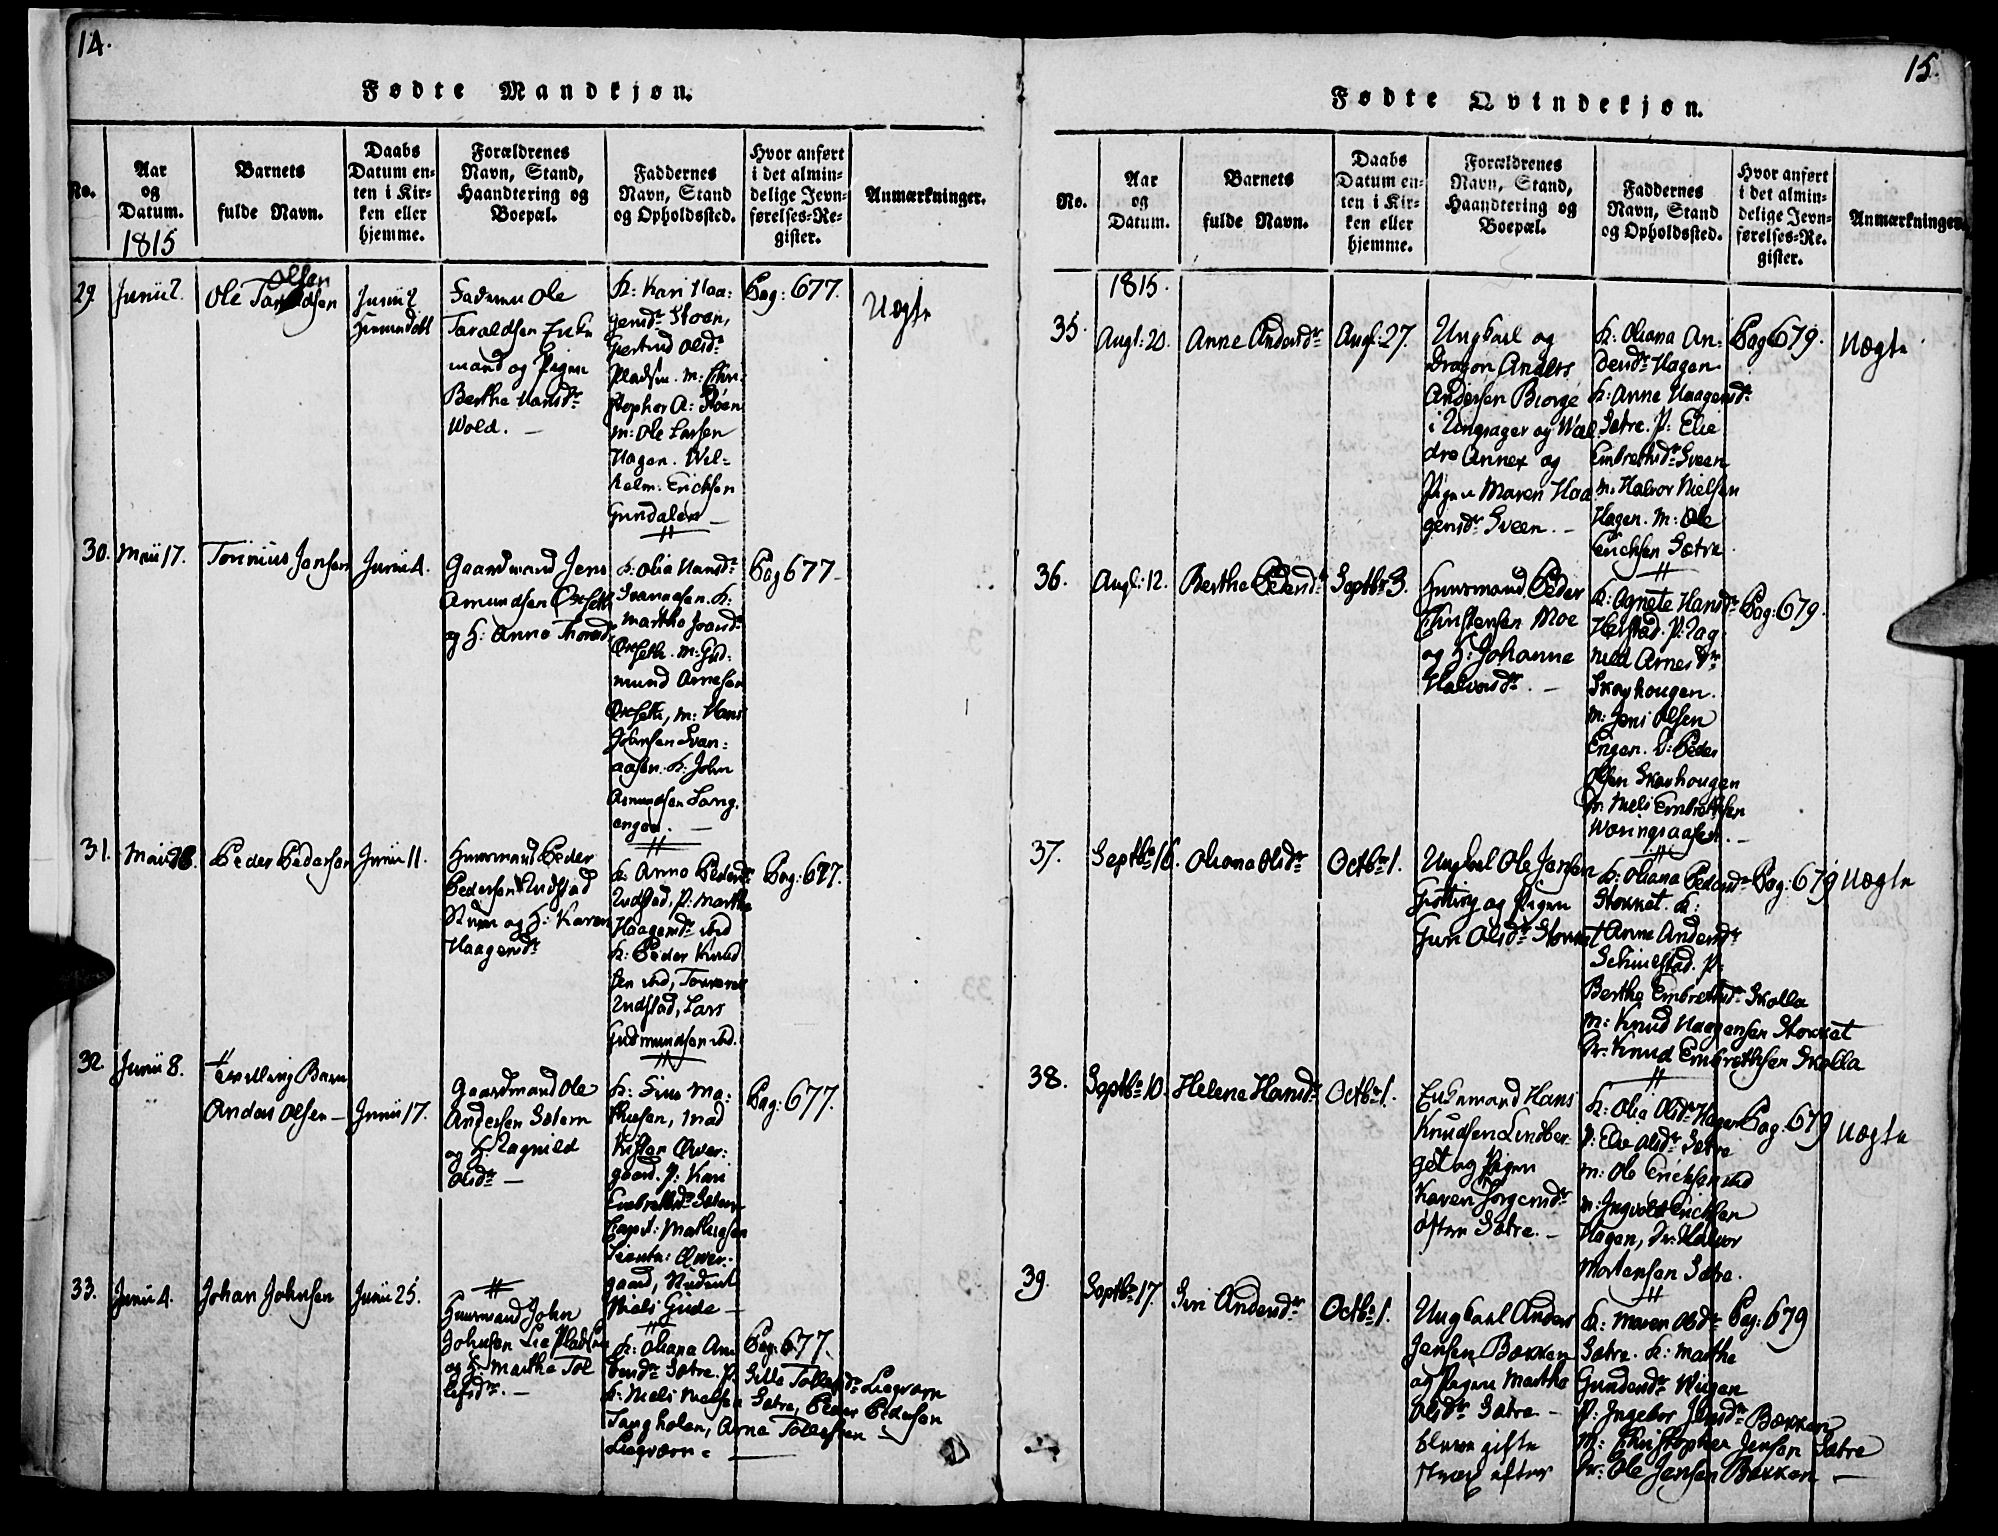 14.
Fødte Mandkjøn.
No.
Aar
og
Datum.
1815
Barnets
fulde Navn.
Daabs
Datum en-
ten i Kir-
ken eller
hjemme.
Forældrenes
Navn, Stand,
Haandtering og
Boepæl.
Faddernes
Navn, Stand
og Opholdssted.
Hvor anført
i det almin-
delige Jevn-
førelses-Re-
gister.
Anmærkninger.
29. Junii 2.
Ole Taraldsen
Olsen
Junii 2
Ole
Taraldsen Enke
mand og Pigen
Berthe Hansdr
Wold. —
K: Kari Haa:
gensdr Stoen,
Giertrud Olsdr
Pladsen. M: Chri
stopher A: Stoen
M: Ole Larsen
Hagen. Wil=
helm Erichsen
Gundalen —
Pag: 677.
Uægte
30. Maii 17.
Tonnius Jensen
Junii 4.
Gaardmand Jens
Amundsen Oxseth
og H: Anne Thoresdr
K: Olia Hansdr
Svanaasen. K:
Martha Joansdr
Oxseth. M: Gud:
mund Arnesen
Oxseth, M: Hans
Johnsen Svan:
aasen. K: John
Amundsen Lang
engen. —
Pag 677
31. Maii 28
Peder Pedersen
Junii 11.
Huusmand Peder
Pedersen Rudstad
og H: Karen
Haagensdr
K: Anne Pedersdr
Rudstad, P: Marthe
Haagensdr ibid
K: Peder Knud
sen ibid,
Rudstad, Lars
Gudmundsen ibd.
Pag: 677.
32. Junii 8.
Tvilling Barn
Anders Olsen —
Junii 17.
Gaardmand Ole
Andersen Sætern
og H Ragnild
Olsdr —
K: Mad
Kisten Over:
gaard. P: Kari
Embretsdr Sætern
Capt: Mathiesen
Over:
gaard, Student
Niels Gude —
Pag: 677.
33. Junii 4.
Johan Johnsen
Junii 25.
Huusmand John
Johnsen Lie Pladsen
og H: Martha Tol
lefsdr. —
K: Oliana An
dersdr Sætre. P: Sille Tollefsdr Liegværn
K: Niels Nielsen Sætre, Peder Pedersen
Tangholen, Arne Tollefsen
Liegværn —
Pag: 677.
15.
Fødte Qvindekjøn.
No.
Aar
og
Datum.
Barnets
fulde Navn.
Daabs
Datum en-
ten i Kir-
ken eller
hjemme.
Forældrenes
Navn, Stand,
Haandtering og
Boepæl.
Faddernes
Navn, Stand
og Opholdssted.
Hvor anført
i det almin-
delige Jevn-
førelses-Re-
gister.
Anmærkninger.
1815.
35. Augl: 20.
Anne Andersdr
Augl: 27.
Ungkarl og
Dragon Anders
Andersen Biorge
i Ringsager og Wæl
dre Annex og
Pigen Maren Haa
gensdr Sveen. —
K: Oliana An:
dersdr Hagen
K: Anne Haagensdr
Sætre. P: Elie
Embretsdr Sveen
M: Halvor Nielsen
Hagen. M: Ole
Erichsen Sætre
Pag 679.
Uægte
36. Augl: 12.
Berthe Pedersdr
Septbr 3.
Huusmand Peder
Christensen Moe
og H: Johanne
Halvorsdr. —
K: Agnete Hansdr
Helstad. P: Rag
nild Arnesdr
Skovhougen.
M: Jens Olsen
Engen. D: Peder
Olsen Skovhougen
Dr: Niels Embretsen
Wæringsaasen. —
Pag: 679.
37. Septbr 16.
Oliana Olsdr
Octbr 1.
Ungkarl Ole Jensen
og Pigen
Guri Olsdr Stokket
K: Oliana Pedersdr
Stokket. K:
Anne Andersdr
P:
Berthe Embretsdr Skolla
M: Knud Haagensen Stokket
Dr: Knud Embrethsen Skolla
Pag: 679
Uægte
38. Septbr 10.
Helene Hansdr
Octbr 1.
Enkemand Hans
Knudsen Lindber:
get og Pigen
Karen Jörgensdr
Sætre. —
K: Olia Olsdr Hagen
P: Elie Olsdr Sætre
M: Ole Erichsen ibid
M: Ingvold Erichsen
Hagen, Dr: Halvor
Mortensen Sætre.
Pag: 679
Uægte
39. Septbr 17.
Siri Andersdr
Octbr 1.
Ungkarl Anders
Jensen Bækken
og Pigen Marthe
Olsdr Sætre —
bleve gifte
strax efter
K: Maren Olsdr
Sætre. K: Marthe
Gundersdr Wiigen
P: Ingebor Jensdr Bækken
M: Christopher Jensen Sætre
Dr: Ole Jensen Bækken —
Pag: 679